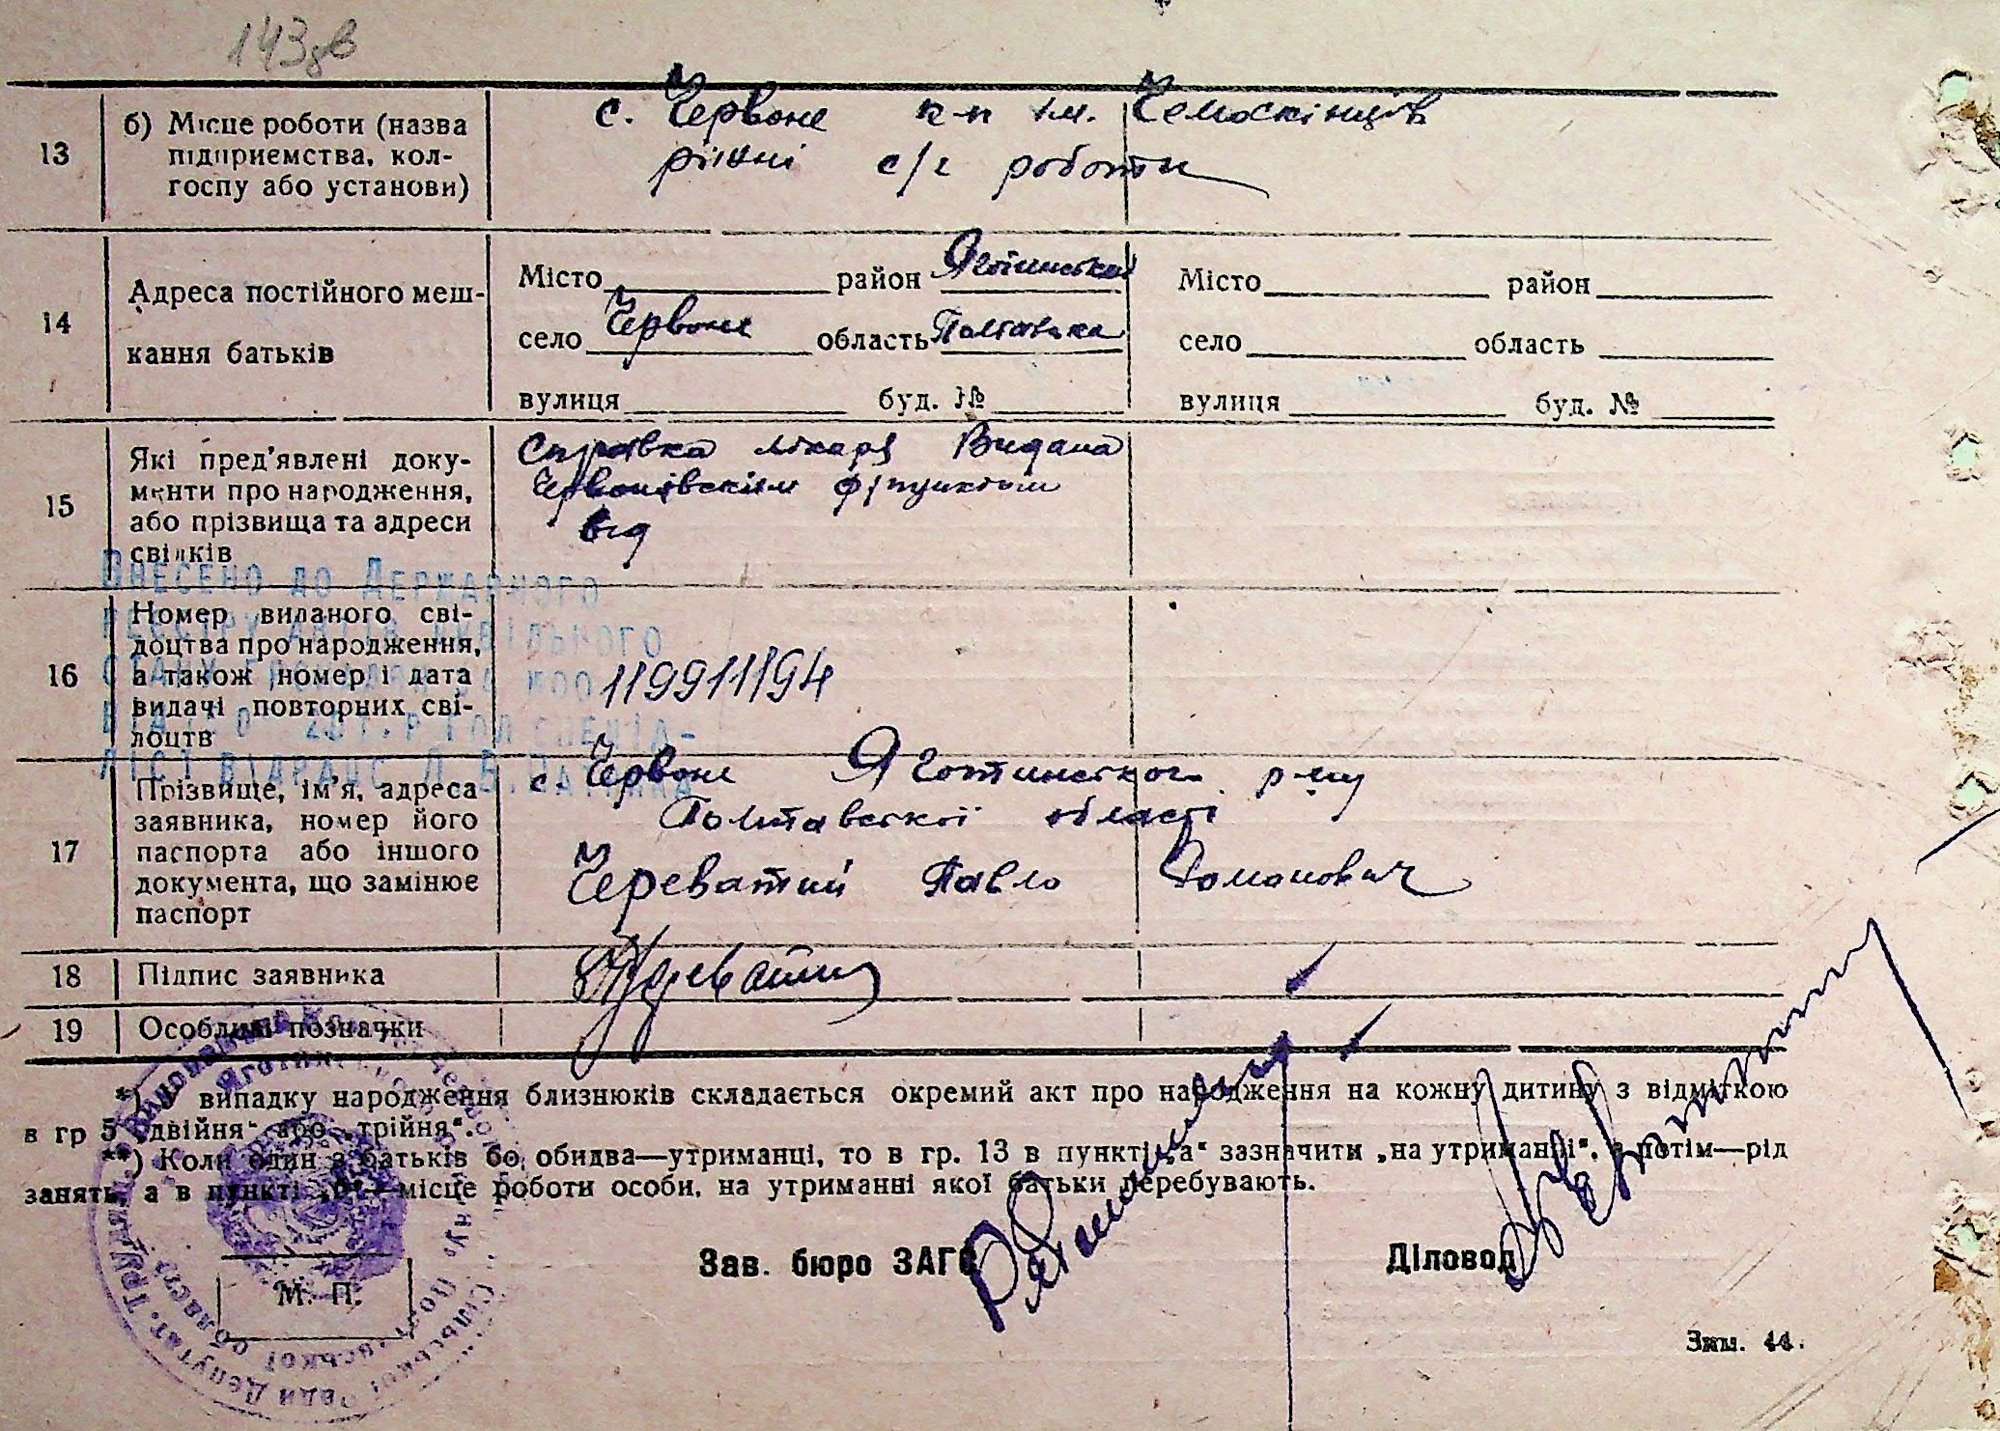 143зв
13
б) Місце роботи (назва
підприємства, кол-
госпу або установи)
с. Червоне к-п ім. Челюскінців
різні с/г роботи
14
Адреса постійного меш-
кання батьків
Місто район Яготинський
село Червоне область Полтавська
вулиця буд. №
Місто район
село область
вулиця буд. №
15
Які пред'явлені доку-
менти про народження,
або прізвища та адреси
свідків
Справка лікаря Видана
Червонівским ф/пунктом
від
16
Номер виданого сві-
доцтва про народження,
а також номер і дата
видачі повторних сві-
доцтв
119911194
Внесено до Державного
реєстру актів цивільного
стану громадян за №00
17
Прізвище, ім'я, адреса
заявника, номер його
паспорта або іншого
документа, що замінює
паспорт
с. Червоне Яготинського р-ну
Полтавської області
Череватий Павло Романович
18
Підпис заявника
19
Особливі позначки
*) У випадку народження близнюків складається окремий акт про народження на кожну дитину з відміткою
в гр 5 „двійня" або „трійня".
**) Коли один з батьків бо обидва—утриманці, то в гр. 13 в пункті „а" зазначити „на утриманні", а потім—рід
занять, а в пункті „б" місце роботи особи, на утриманні якої батьки перебувають.
Зав. бюро ЗАГС
Діловод
М. П.
Зам. 44.